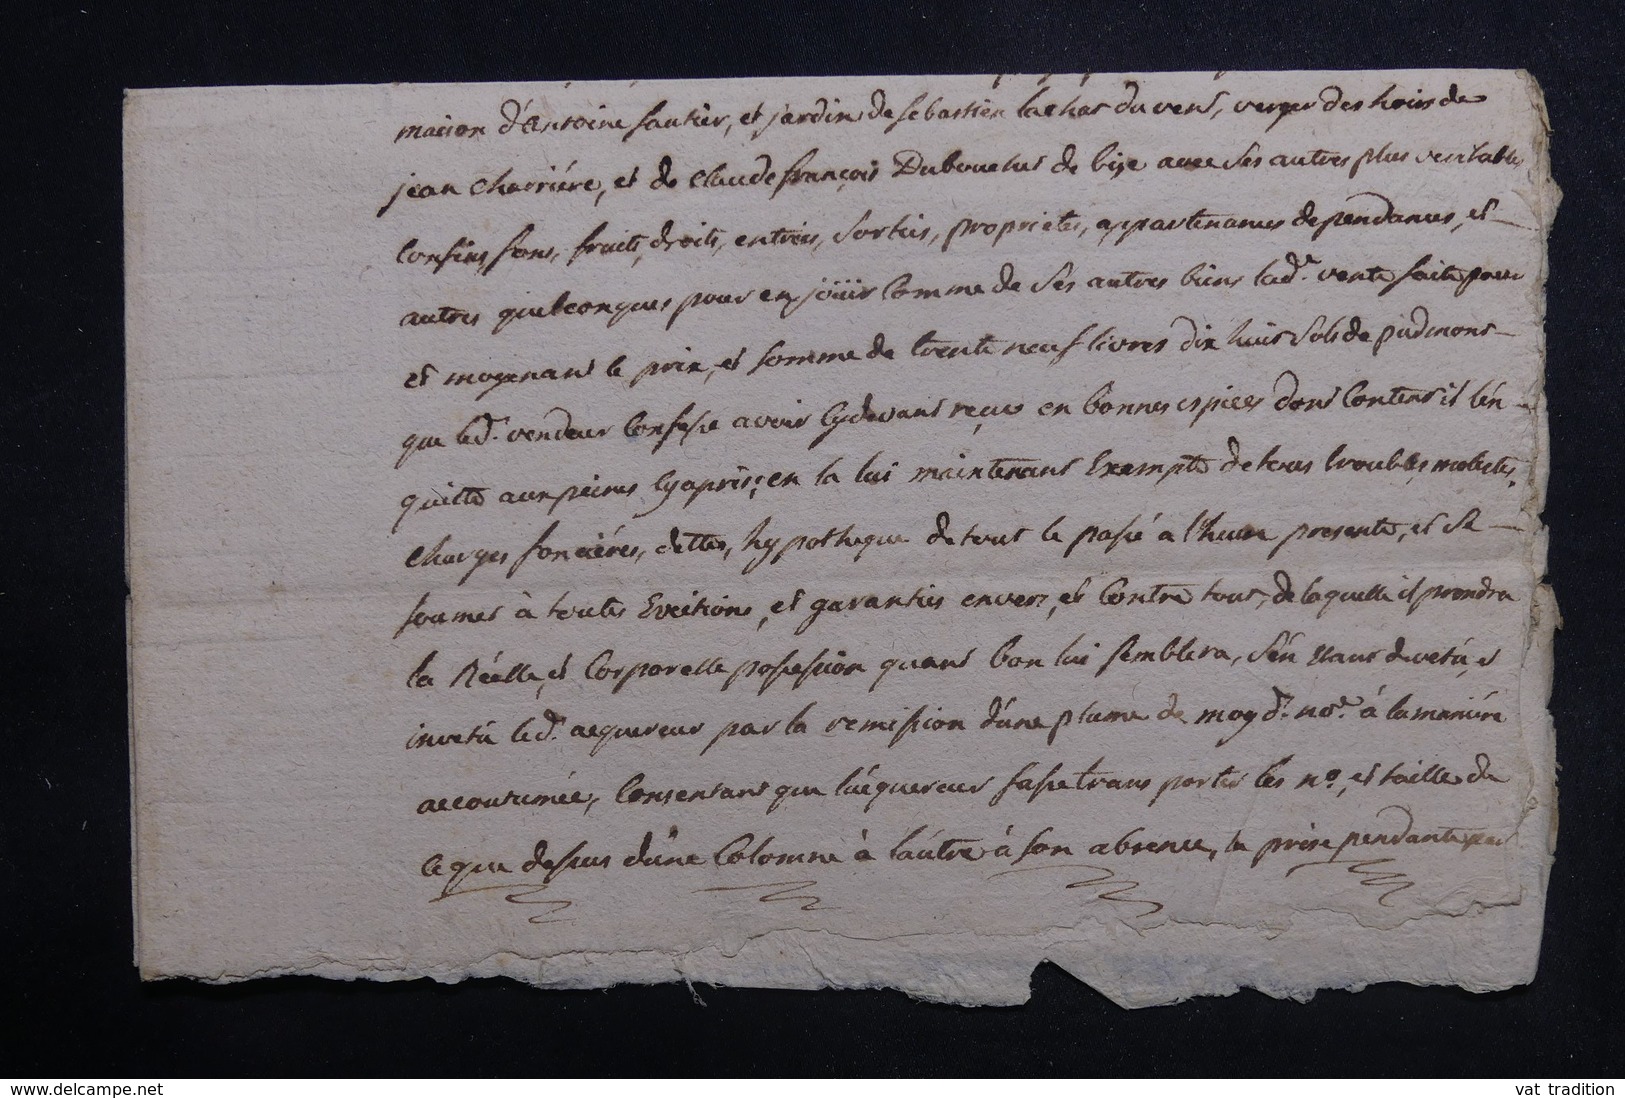 maison d'Antoine Sautier, et jardin de Sebastien Lachat du vent, verger des hoirs de
jean charriére, et de claude françois Dubouchet de bise avec ses autres plus veritables
confins, fons, fruits, droits, entrées, sorties, proprietés, appartenances dependances, et
autres quelconques pour en joüir comme de ses autres biens lad.e vente faite pour
et moyenant le prix, et somme de trente neuf livres dix huit sols de piedmont
que led.t vendeur confesse avoir cydevant reçue en bonnes espèces dont content il l'en
quitte aux peines cyapris; en la lui maintenant Exempte de tous troubles, molestes,
charges foncières, dettes, hypotheque de tout le passé a l'heure presente, et se
soumet à toutes Evictions, et garanties envers, et contre tous, de laquelle il prendra
la Réelle, et corporelle possession quant bon lui semblera, s'en etant devetu, et
invetu led.t acquereur par la remission d'une plume de moy d.t no.re à la maniére
accoutumée, consentant que l'acquereur fasse transporter les n.o, et taille de
ce que dessus d'une colomne à l'autre à son absence, la prise pendante par
www.delcampe.net
vat tradition